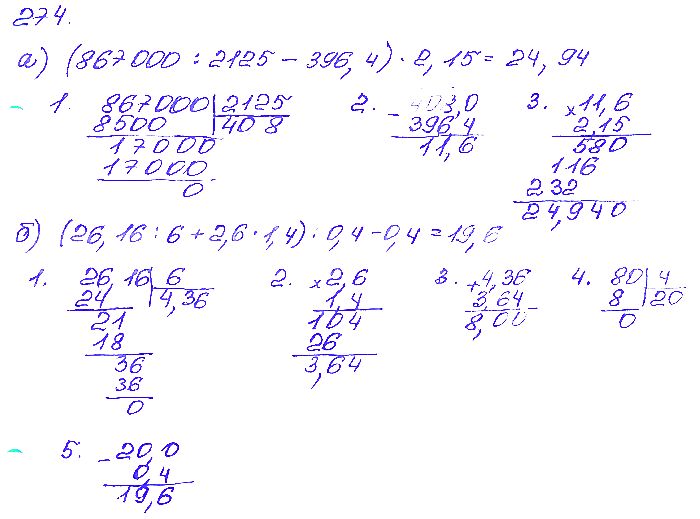 274.
а) (867000 : 2125 − 396,4) · 2,15 = 24,94
1. 867000 2125 2. − 408,0 3. × 11,6
8500 408 396 4 2,15
17000 11,6 580
17000 116
0 232
24,940
б) (26,16 : 6 + 2,6 · 1,4) : 0,4 − 0,4 = 19,6
1. 26,16 6 2. × 2,6 3. + 4,36 4. 80 4
24 4,36 1,4 3,64 8 20
21 104 8,00 0
18 26
36 3,64
36
0
5. − 20,0
0,4
19,6